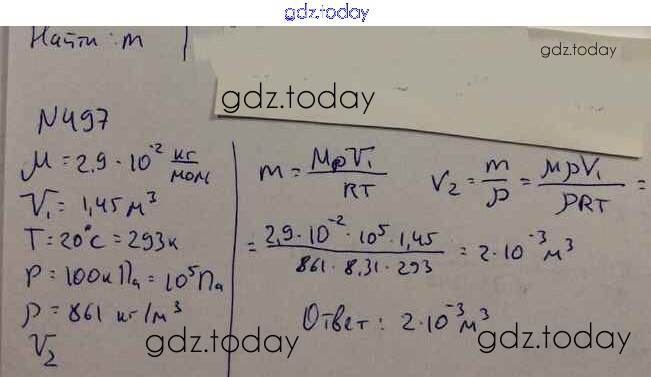 gdz.today
Найти: m
gdz.today
gdz.today
N497
M = 2,9 · 10⁻² кг/моль
V₁ = 1,45 м³
T = 20°C = 293к
P = 100к Па = 10⁵Па
ρ = 861 кг/м³
V₂
m = MpV₁/RT V₂ = m/ρ = MpV₁/ρRT =
= 2,9 · 10⁻² · 10⁵ · 1,45/861 · 8,31 · 293 = 2 · 10⁻³ м³
Ответ: 2 · 10⁻³ м³
gdz.today
gdz.today